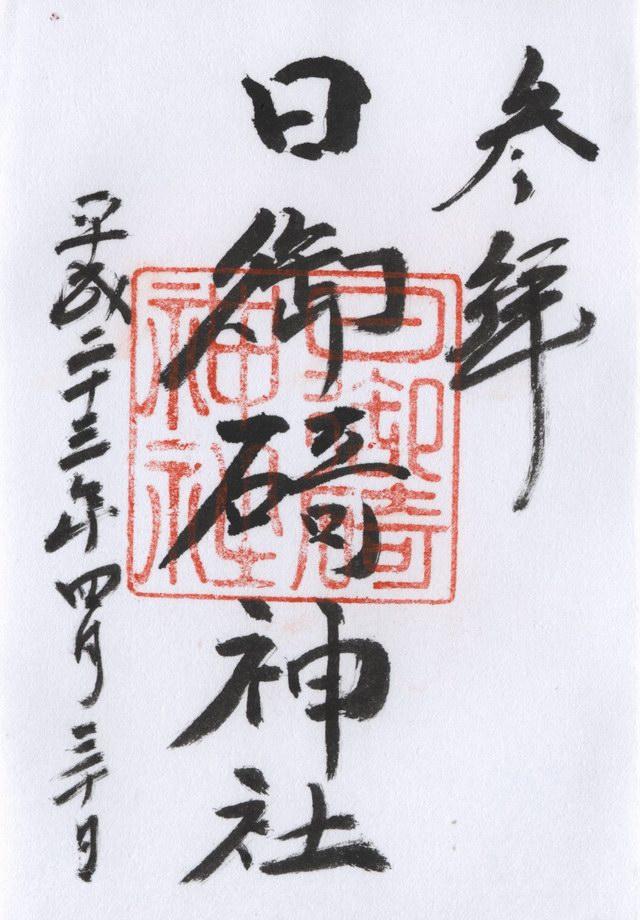 参拝
日御碕神社
日御碕
神社
平成二十三年四月三十日